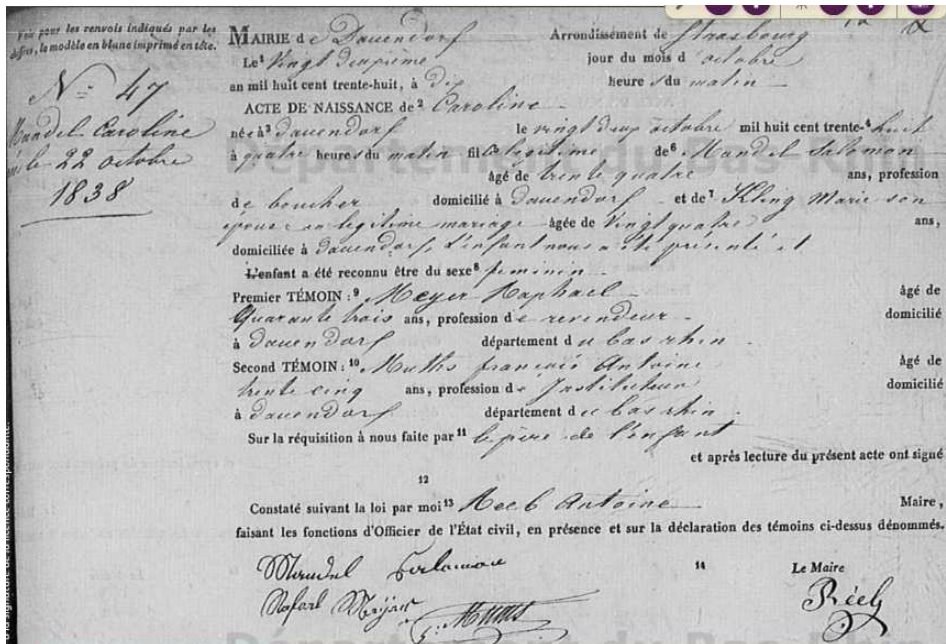 Voir pour les renvois indiqués par les
chiffres, le modèle en blanc imprimé en tête.
Nº 47
Mandel Caroline
né le 22 octobre
1838
MAIRIE de Dauendorf Arrondissement de Strasbourg
Le¹ Vingt deuxième jour du mois d'octobre
an mil huit cent trente-huit, à dix heures du matin
ACTE DE NAISSANCE de² Caroline
née à³ dauendorf le vingt deux octobre mil huit cent trente-⁴ huit
à quatre heures du matin fille⁵ légitime de⁶ Mandel Salomon
âgé de trente quatre ans, profession
de boucher domicilié à dauendorf et de⁷ Kling Marie son
épouse en légitime mariage âgée de Vingt quatre ans,
domiciliée à dauendorf, L'enfant nous a été présenté et
L'enfant a été reconnu être du sexe⁸ féminin
Premier TÉMOIN :⁹ Meyer Raphael âgé de
Quarante trois ans, profession de revendeur domicilié
à dauendorf département du bas rhin
Second TÉMOIN :¹⁰ Muths françois Antoine âgé de
trente cinq ans, profession d' Instituteur domicilié
à dauendorf département du bas rhin
Sur la réquisition à nous faite par¹¹ le père de l'enfant
et après lecture du présent acte ont signé
12
Constaté suivant la loi par moi¹³ Reeb Antoine Maire,
faisant les fonctions d'Officier de l'État civil, en présence et sur la déclaration des témoins ci-dessus dénommés.
14 Le Maire
Mandel Salamon
Rafael Meÿer Muths Réeb
Département du Bas-Rhin